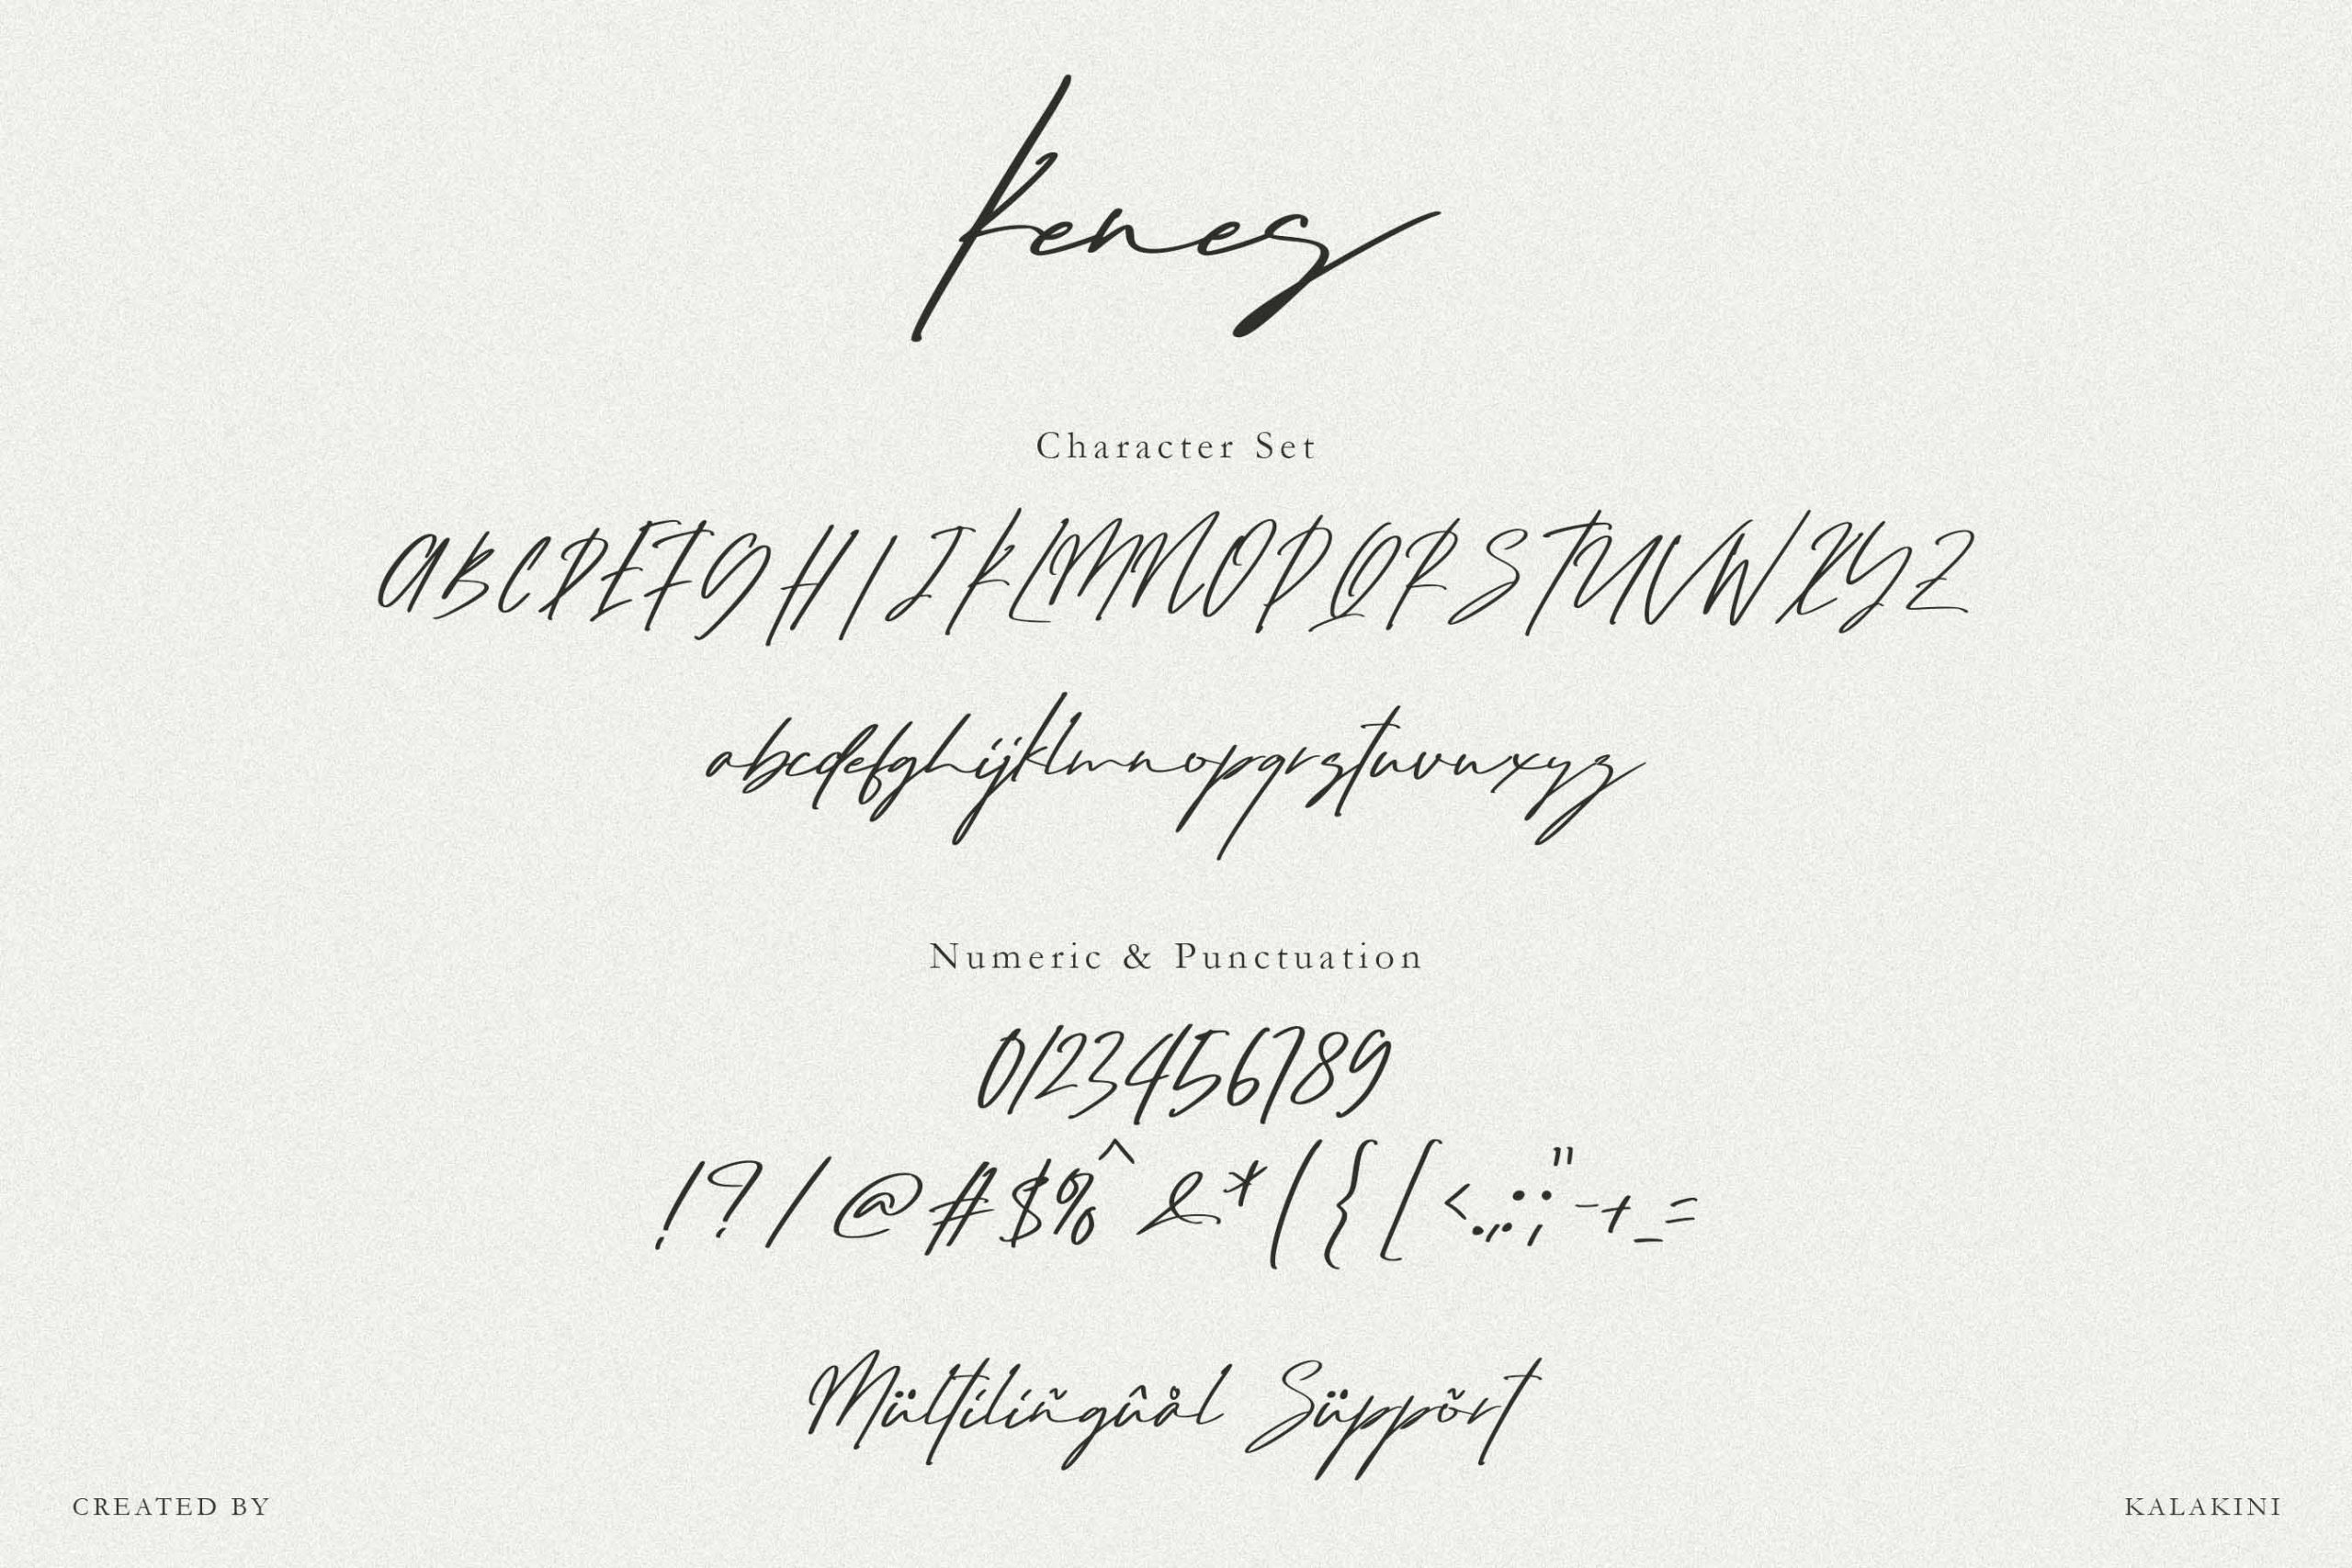 Kenes
Character Set
ABCDEFGHIJKLMNOPQRSTUVWXYZ
abcdefghijklmnopqrstuvwxyz
Numeric & Punctuation
0123456789
!?/@#$%^&*({[<.,:;"-+_=
Mültilíñgûål Süppõrt
CREATED BY
KALAKINI